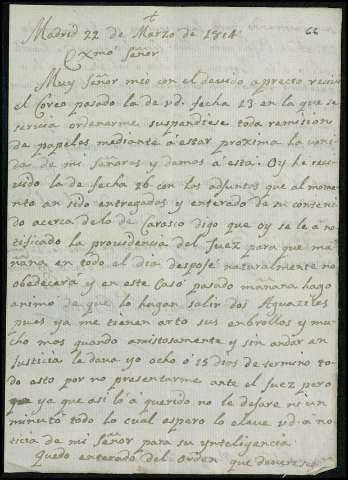 Madrid 22 de Marzo de 1814
66
Exmo Señor
Muy Señor meo con el devido aprecto reciui
el Coreo pasado la de vd. fecha 13 en la que se
servia ordenarme suspendiese toda remision
de papeles mediante á estar proxima la veni
da de mi Señores y demas á esta. Oy he reci
vido la de fecha 16 con los adjuntos que al mome
nto an sido entregados y enterado de su conteni
do acerca de lo de Carasco digo que oy se le á no
tificado la providencia del Juez para que ma
ñana en todo el dia despose naturalmente no
obedecerá y en este Caso pasado mañana hago
animo de que lo hagan salir dos Aguaciles
pues ya me tienen arto sus enbrollos y mu
cho mas quando amistosamente y sin andar en
Justicia le dava yo ocho ó 15 dias de termino to
do esto por no presentarme ante el Juez pero
ya que asi lo á querido no le dejare ni un
minuto todo lo cual espero lo eleve vd. a no
ticia de mi Señor para su ynteligencia
Quedo enterado del orden que devere